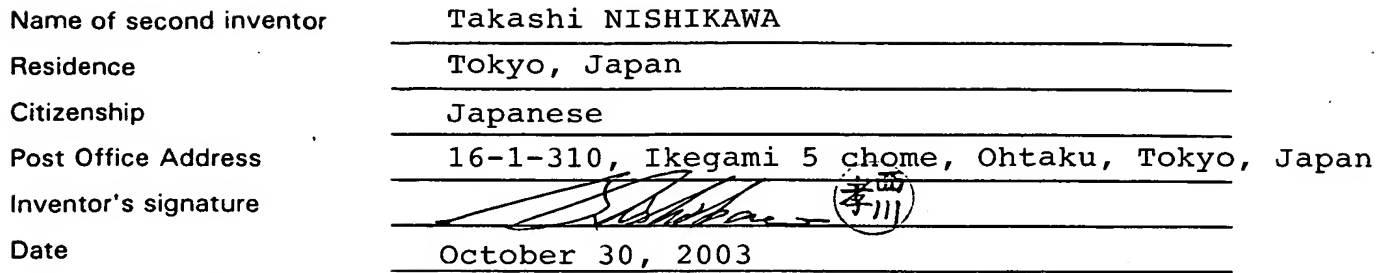 Name of second inventor Takashi NISHIKAWA
Residence Tokyo, Japan
Citizenship Japanese
Post Office Address 16-1-310, Ikegami 5 chome, Ohtaku, Tokyo, Japan
Inventor's signature 西川孝
Date October 30, 2003